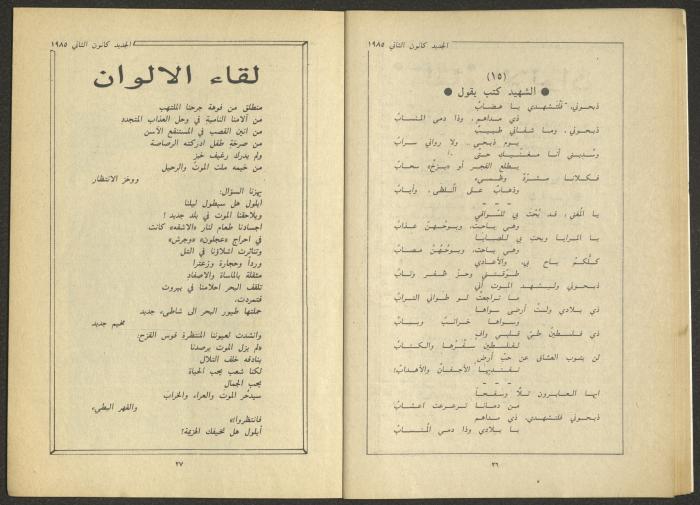 الجديد كانون الثاني ١٩٨٥
(١٥)
● الشهيد كتب يقول ●
ذبحوني، فلتشهدي يا هضاب
ذي مداهم، وذا دمي المنساب
ذبحوني، وما شفاني طبيب
يوم ذبحي.. ولا رواني سراب
وسديني أنا مغنيك حتى
يطلع الفجر أو سحاب
فكلانا مشرد وظميء
وذهاب على اللظى، وأياب
- - -
يا المغني، قد بحت بي للسواقي
وهي باحت، وبوحهن عذاب
يا المرايا وبحت بي للصبايا
وهي باحت، وبوحهن مصاب
كلكم باح بي، والأعادي
طوقتني وحز ظفر وناب
ذبحوني وليشهد الموت أني
ما تراجعت لو طواني التراب
ذي بلادي ولست أرضى سواها
وسواها خرائب ويباب
ذي فلسطين طي قلبي وافي
لفلسطين سفرها والكتاب
لن يتوب العشاق عن حب أرض
تفتديها الأجفان والأهداب!
- - -
ايها العابرون تلا وسفحا
من دمانا ترعرعت اعشاب
ذبحوني فلتشهدي، ذي مداهم
يا بلادي وذا دمي المنساب
٢٦
الجديد كانون الثاني ١٩٨٥
لقاء الالوان
منطلق من فوهة جرحنا الملتهب
من آلامنا النامية في وحل العذاب المتجدد
من انين القصب في المستنقع الآسن
من صرخة طفل ادركته الرصاصة
ولم يدرك رغيف خبز
من خيمه ملت الموت والرحيل
ووخز الانتظار
يهزنا السؤال:
أيلول هل سيطول ليلنا
ويلاحقنا الموت في بلد جديد !
اجسادنا طعام لنار «الاشقه» كانت
في احراج «عجلون» «وجرش»
وتناثرت اشلاؤنا في التل
وردا وحجارة وزعترا
مثقلة بالمأساة والاصفاد
تلقف البحر احلامنا في بيروت
فتمردت،
حملتها طيور البحر الى شاطىء جديد
مخيم جديد
وانشدت لعيوننا المنتظرة قوس القزح:
«لم يزل الموت يرصدنا
بنادقه خلف التلال
لكنا شعب يحب الحياة
يحب الجمال
سيدحر الموت والعراء والخراب
والقهر البطيء
فانتظروا»
أيلول هل تخيفك الهزيمة؟
٢٧